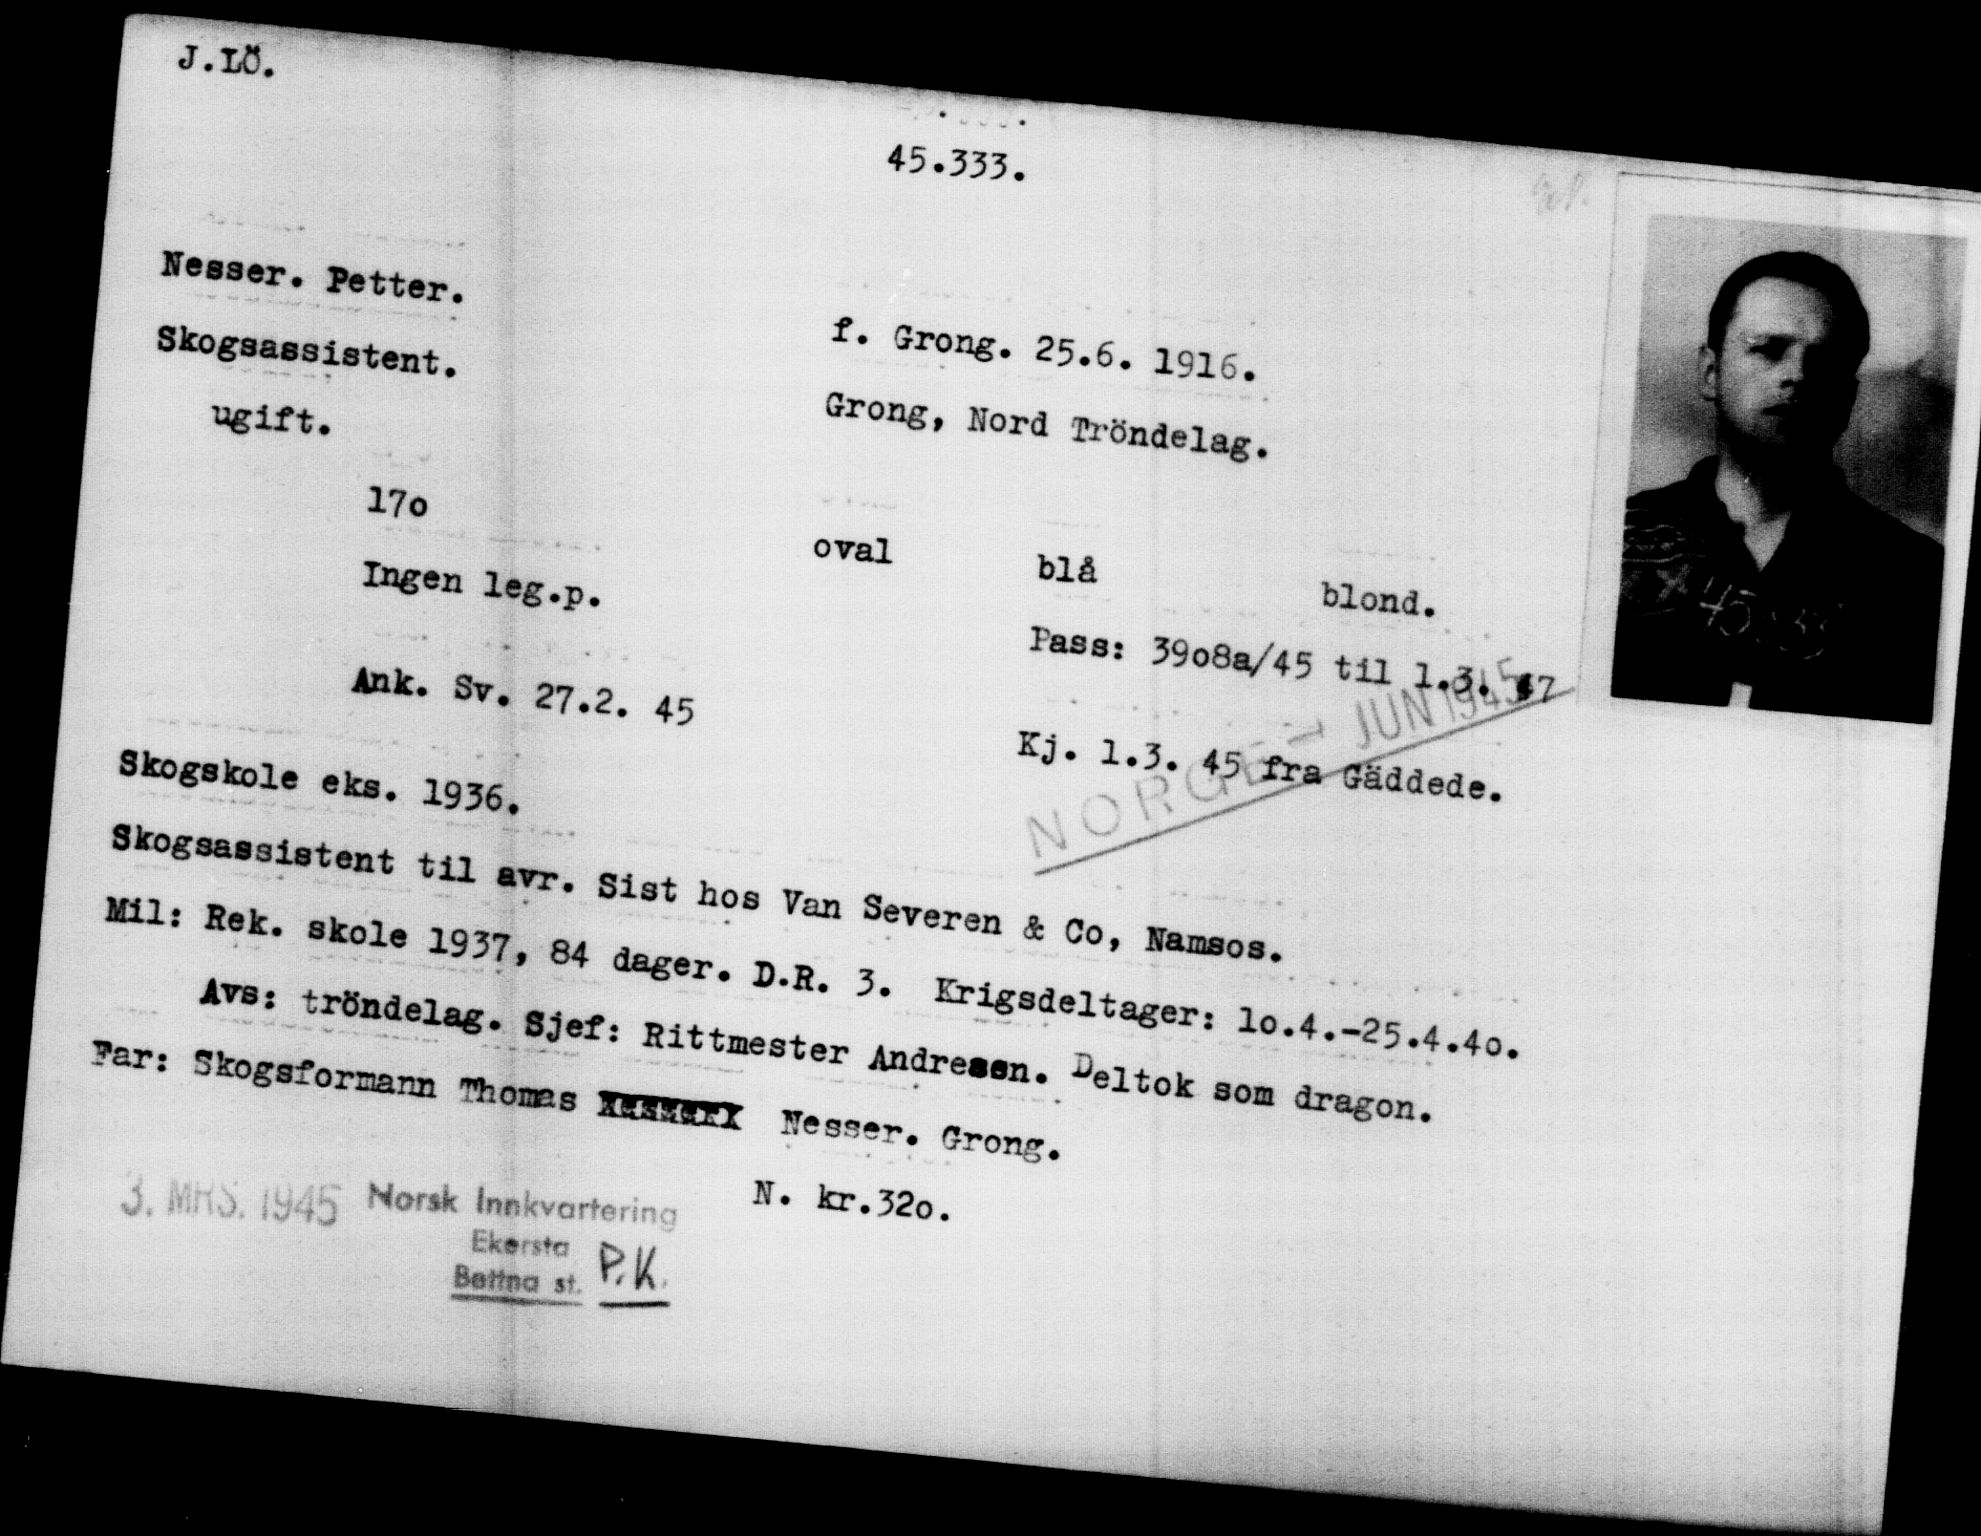 J.LÖ.
45.333.
Nesser. Petter.
f. Grong. 25.6. 1916.
Skogsassistent.
Grong, Nord Tröndelag.
ugift.
17o
oval
blå
blond.
Ingen leg.p.
Pass: 39o8a/45 til 1.3. 47
Ank. Sv. 27.2. 45
Kj. 1.3. 45 fra Gäddede.
NORGE - JUN 1945
Skogskole eks. 1936.
Skogsassistent til avr. Sist hos Van Severen & Co, Namsos.
Mil: Rek. skole 1937, 84 dager. D.R. 3. Krigsdeltager: 1o.4.-25.4.4o.
Avs: tröndelag. Sjef: Rittmester Andresen. Deltok som dragon.
Far: Skogsformann Thomas Nesser. Grong.
N. kr.32o.
3. MRS. 1945 Norsk Innkvartering
Ekersta
Bettna st. P.K.